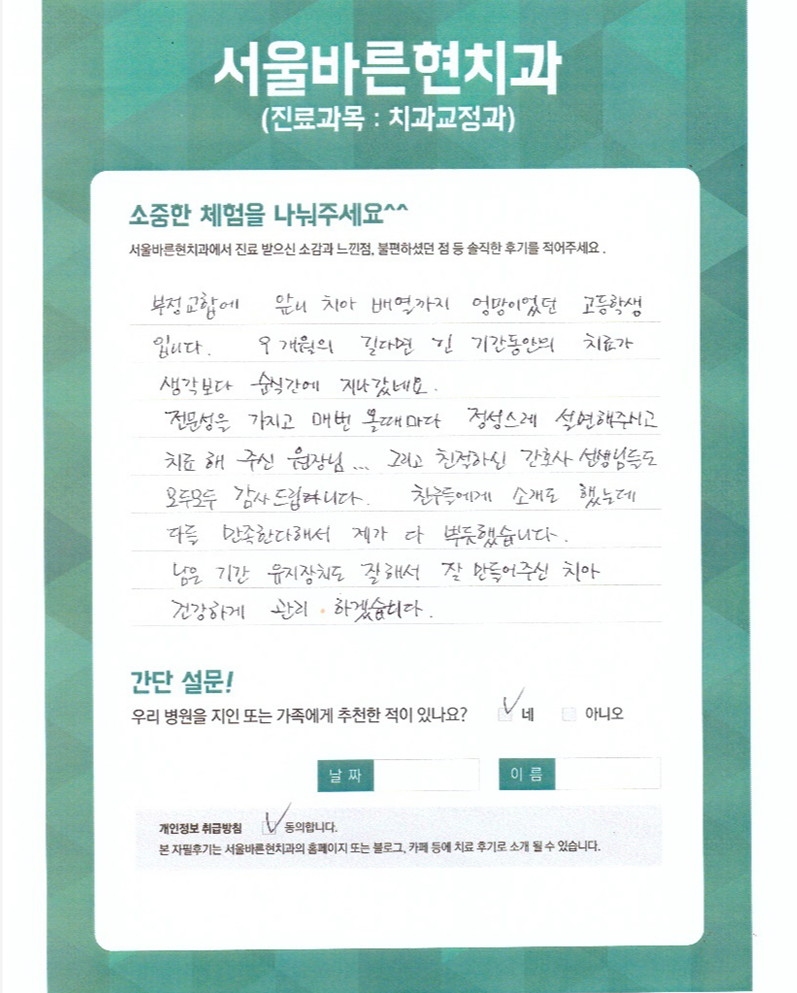 서울바른현치과
(진료과목 : 치과교정과)
소중한 체험을 나눠주세요^^
서울바른현치과에서 진료 받으신 소감과 느낀점, 불편하셨던 점 등 솔직한 후기를 적어주세요.
부정교합에 앞니 치아 배열까지 엉망이었던 고등학생
입니다. 9개월의 길다면 긴 기간동안의 치료가
생각보다 순식간에 지나갔네요.
전문성을 가지고 매번 올때마다 정성스레 설명해주시고
치료 해 주신 원장님... 그리고 친절하신 간호사 선생님들도
모두모두 감사드립니다. 친구들에게 소개도 했는데
다들 만족한다해서 제가 다 뿌듯했습니다.
남은 기간 유지장치도 잘해서 잘 만들어주신 치아
건강하게 관리 하겠습니다.
간단 설문!
우리 병원을 지인 또는 가족에게 추천한 적이 있나요? 네 아니오
날 짜 이 름
개인정보 취급방침 동의합니다.
본 자필후기는 서울바른현치과의 홈페이지 또는 블로그, 카페 등에 치료 후기로 소개 될 수 있습니다.